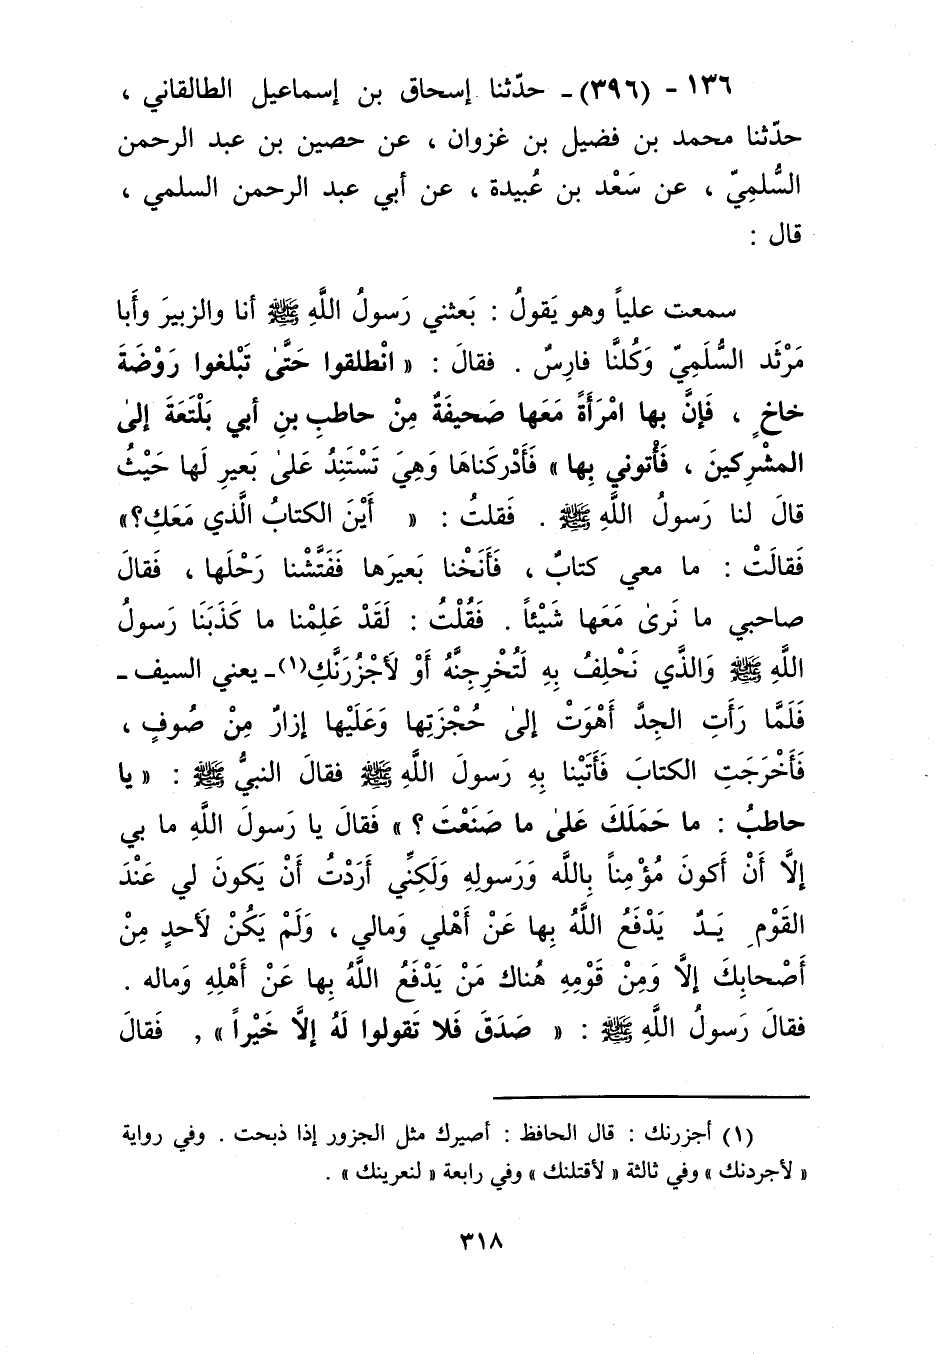 ١٣٦ - (٣٩٦) - حدّثنا إسحاق بن إسماعيل الطالقاني ،
حدّثنا محمد بن فضيل بن غزوان ، عن حصين بن عبد الرحمن
السُّلمِيّ ، عن سَعْد بن عُبيدة ، عن أبي عبد الرحمن السلمي ،
قال :
سمعت علياً وهو يَقولُ : بَعثني رَسولُ اللَّهِ ﷺ أنا والزبيرَ وأَبا
مَرْثَد السُّلَمِيّ وَكُلنَّا فارِسٌ . فقالَ : « انْطلقوا حَتَّىٰ تَبْلغوا رَوْضَةَ
خاخٍ ، فَإنَّ بها امْرَأَةً مَعَها صَحيفَةٌ مِنْ حاطبِ بنِ أبي بَلْتَعَةَ إلىٰ
المشْرِكينَ ، فَأْتوني بِها » فَأَدْركناهَا وَهِيَ تَسْتَنِدُ عَلىٰ بَعيرِ لَها حَيْثُ
قالَ لنا رَسولُ اللَّهِ ﷺ . فَقلتُ : « أَيْنَ الكتابُ الَّذي مَعَكِ؟»
فَقالَتْ : ما معي كتابٌ ، فَأَنَخْنا بَعيرَها فَفَتَّشْنا رَحْلَها ، فَقالَ
صاحبي ما نَرىٰ مَعَها شَيْئاً . فَقُلْتُ : لَقَدْ عَلِمْنا ما كَذَبَنَا رَسولُ
اللَّهِ ﷺ وَالذَّي نَحْلِفُ بِهِ لَتُخْرِجِنَّهُ أَوْ لَأجْزُرَنَّكِ(١)ـ يعني السيف ـ
فَلَمَّا رَأَتِ الجِدَّ أَهْوَتْ إلىٰ حُجْزَتِها وَعَلَيْها إزارٌ مِنْ صُوفٍ ،
فَأَخْرَجَتِ الكتابَ فَأَتَيْنا بِهِ رَسولَ اللَّهِ ﷺ فقالَ النبيُّ ﷺ : « يا
حاطبُ : ما حَمَلَكَ عَلىٰ ما صَنَعْتَ ؟ » فَقالَ يا رَسولَ اللَّهِ ما بي
إلَّا أَنْ أَكونَ مُؤْمِناً بِاللَّه وَرَسولِهِ وَلَكِنِّي أَرَدْتُ أَنْ يَكونَ لي عَنْدَ
القَوْمِ يَـدٌ يَدْفَعُ اللَّهُ بِها عَنْ أَهْلي وَمالي ، وَلَمْ يَكُنْ لَأحدٍ مِنْ
أَصْحابِكَ إلَّا وَمِنْ قَوْمِهِ هُناك مَنْ يَدْفَعُ اللَّهُ بِها عَنْ أَهْلِهِ وَماله .
فقالَ رَسولُ اللَّهِ ﷺ : « صَدَقَ فَلا تَقولوا لَهُ إلاَّ خَيْراً » , فَقالَ
(١) أجزرنك : قال الحافظ : أصيرك مثل الجزور إذا ذبحت . وفي رواية
« لأجردنك » وفي ثالثة « لأقتلنك » وفي رابعة « لنعرينك » .
٣١٨